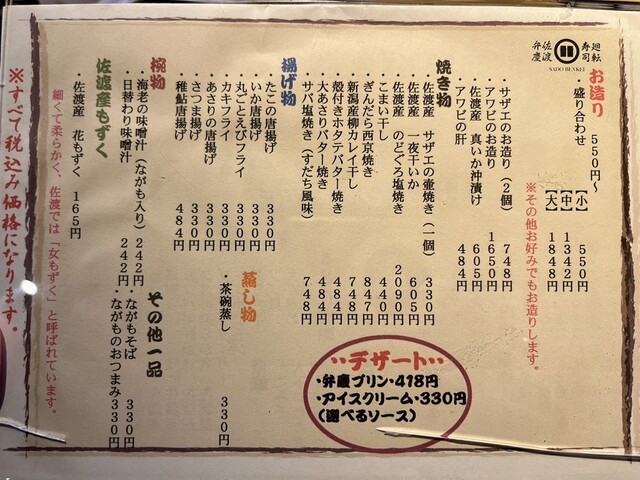 廻転
寿司
佐渡
弁慶
SADO BENKEI
お造り
550円～
・盛り合わせ
【小】 550円
【中】 1342円
【大】 1848円
※その他お好みでもお造りします。
・サザエのお造り（2個） 748円
・アワビのお造り 1650円
・佐渡産 真いか沖漬け 605円
・アワビの肝 484円
焼き物
・佐渡産 サザエの壷焼き（一個） 330円
・佐渡産 一夜干いか 605円
・佐渡産 のどぐろ塩焼き 2090円
・こまい干し 440円
・ぎんだら西京焼き 847円
・新潟産柳カレイ干し 748円
・殻付きホタテバター焼き 484円
・大あさりバター焼き 484円
・サバ塩焼き（すだち風味） 748円
揚げ物
・たこの唐揚げ 330円
・いか唐揚げ 330円
・丸ごとえびフライ 330円
・カキフライ 330円
・あさりの唐揚げ 330円
・さつま揚げ 330円
・稚鮎唐揚げ 484円
蒸し物
・茶碗蒸し 330円
椀物
・海老の味噌汁（ながも入り） 242円
・日替わり味噌汁 242円
その他一品
・ながもそば 330円
・ながものおつまみ 330円
佐渡産もずく
・佐渡産 花もずく 165円
細くて柔らかく、佐渡では「女もずく」と呼ばれています。
※すべて税込み価格になります。
・・デザート・・
・弁慶プリン・418円
・アイスクリーム・330円
（選べるソース）